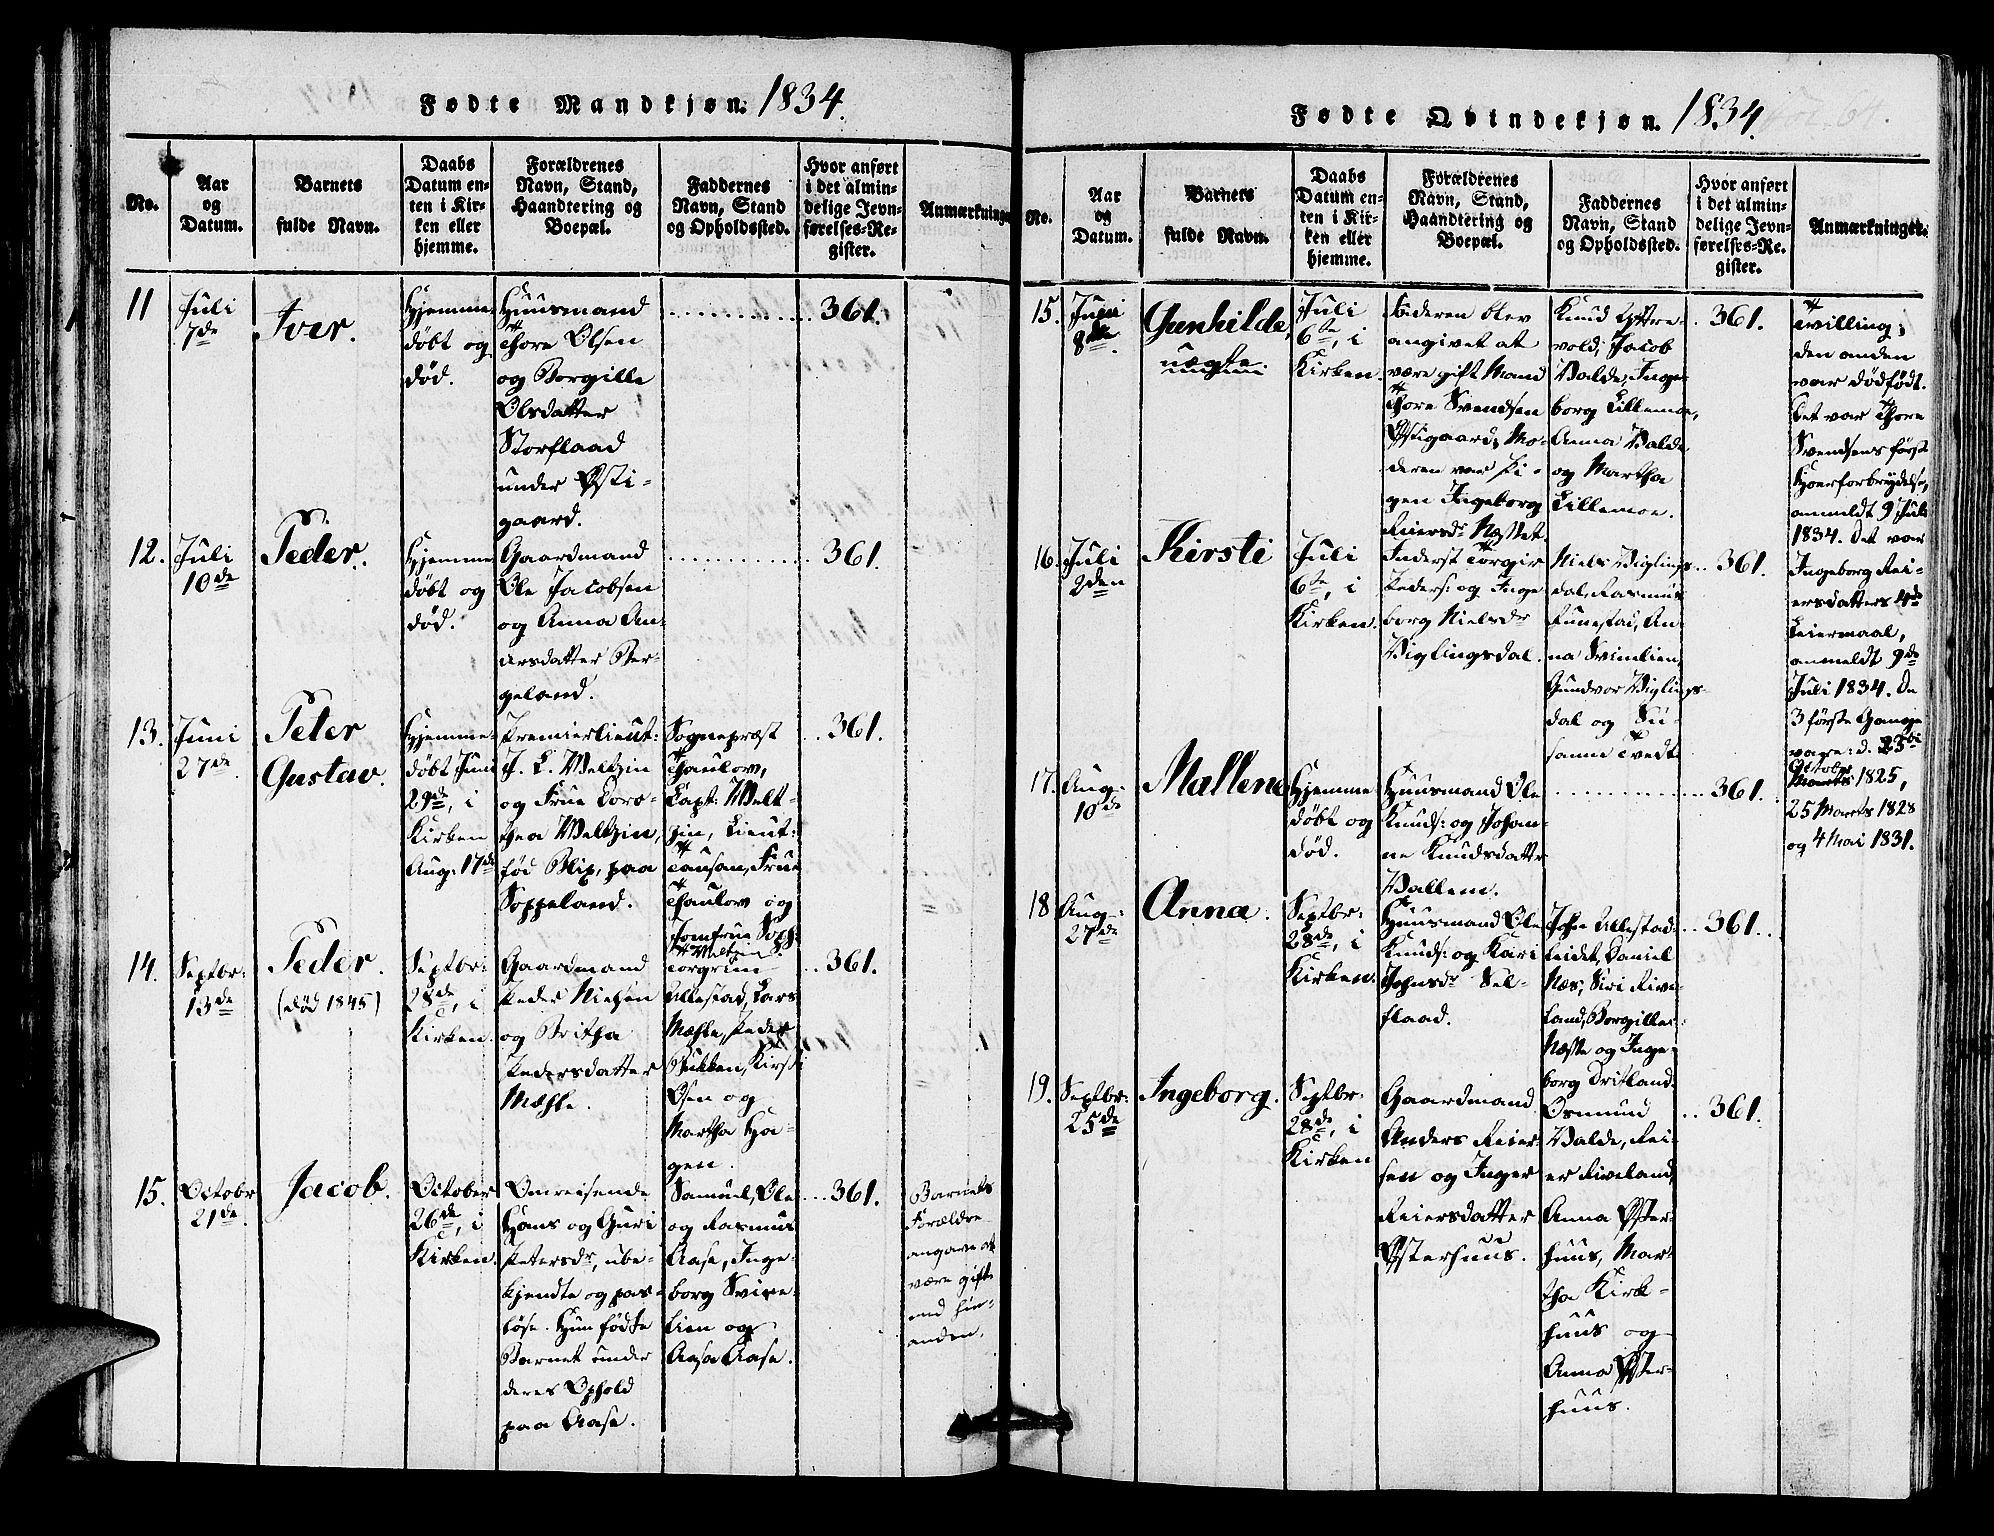 Fødte Mandkjøn. 1834.
No.
Aar
og
Datum.
Barnets
fulde Navn.
Daabs
Datum en-
ten i Kir-
ken eller
hjemme.
Forældrenes
Navn, Stand,
Haandtering og
Boepæl.
Faddernes
Navn, Stand
og Opholdssted.
Hvor anført
i det almin-
delige Jevn-
førelses-Re-
gister.
Anmærkninger
11
Juli
7de
Iver.
Hjemme-
døbt og
død.
Huusmand
Thore Olsen
og Borgille
Olsdatter
Storflaad
under Østi-
gaard.
361.
12.
Juli
10de
Peder.
Hjemme
døbt og
død.
Gaardmand
Ole Jacobsen
og Anna An-
dersdatter Ber-
geland.
361.
13.
Juni
27de
Peter
Gustav.
Hjemme-
døbt Juni
29de, i
Kirken
Aug: 17de
Premierlieut:
J. L. Weltzin
og Frue Doro-
thea Weltzin,
fød Blix, paa
Soppeland.
Sognepræst
Thaulow,
Capt: Welt-
zin, Lieut:
Tausan, Frue
Thaulow og
Jomfrue Soph:
Weltzin.
361.
14.
Septbr:
13de
Peder.
(død 1845)
Septbr:
28de, i
Kirken.
Gaardmand
Peder Nielsen
og Britha
Pedersdatter
Mæhle.
Torgrim
Allestad, Lars
Mæhle, Peder
Bukken, Kirsti
Øen og
Martha Ha-
gen.
361.
15.
Octobr
21de.
Jacob.
October
26de, i
Kirken.
Omreisende
Hans og Guri
Petersdr, ube-
kjendte og pas-
løse. Hun fødte
Barnet under
deres Ophold
paa Aase.
Samuel, Ole
og Rasmus
Aase, Inge-
borg Svire-
lien og
Aasa Aase.
361.
Barnets
Forældre
angave at
være gifte
med hin-
anden.
Fødte Qvindekjøn. 1834.
No.
Aar
og
Datum.
Barnets
fulde Navn.
Daabs
Datum en-
ten i Kir-
ken eller
hjemme.
Forældrenes
Navn, Stand,
Haandtering og
Boepæl.
Faddernes
Navn, Stand
og Opholdssted.
Hvor anført
i det almin-
delige Jevn-
førelses-Re-
gister.
Anmærkninger.
15.
Juni
8de.
Gunhilde,
uægte
Juli
6te, i
Kirken.
Faderen blev
angivet at
være gift Mand
Thore Svendsen
Østigaard; Mo-
deren var Pi-
gen Ingeborg
Reiersdr Næsset.
Knud Yttre-
vold, Jacob
Valde, Inge-
borg Lillemoe,
Anna Valde
og Martha
Lillemoe.
361.
Tvilling;
den anden
var dødfødt.
Det var Thore
Svendsens første
Hoerforbrydelse,
anmeldt 9 Juli
1834. Det var
Ingeborg Rei-
ersdatters 4de
Leiermaal,
anmeldt 9de
Juli 1834. De
3 første Gange
vare: d. 23de
October
1825,
25 Marts 1828
og 4 Mai 1831.
16.
Juli
2den
Kirsti
Juli
6te, i
Kirken.
Inderst Torgir
Peders: og Inge
borg Nielsdr
Viglingsdal.
Niels Viglings-
dal, Rasmus
Funestad, An-
na Svimlien,
Gundvor Viglings-
dal og Su-
sanne Tvedt.
361.
17.
Aug:
10de
Mallene
Hjemme
døbt og
død.
Huusmand Ole
Knuds: og Johan-
ne Knudsdatter
Vallem.
361.
18
Aug:
27de
Anna.
Septbr:
28de, i
Kirken.
Huusmand Ole
Knuds: og Kari
Johnsdr Sel-
flaad.
John Allestad-
leidet, Daniel
Næs, Siri Rive-
land, Borgille
Næsse og Inge-
borg Dritland.
361.
19.
Septbr:
25de
Ingeborg.
Septbr:
28de, i
Kirken
Gaardmand
Anders Reier-
sen og Inger
Reiersdatter
Østerhuus.
Osmund
Valde, Rei-
er Riveland,
Anna Øster-
huus, Mar-
tha Kirke-
huus og
Anna Øster-
huus.
361.